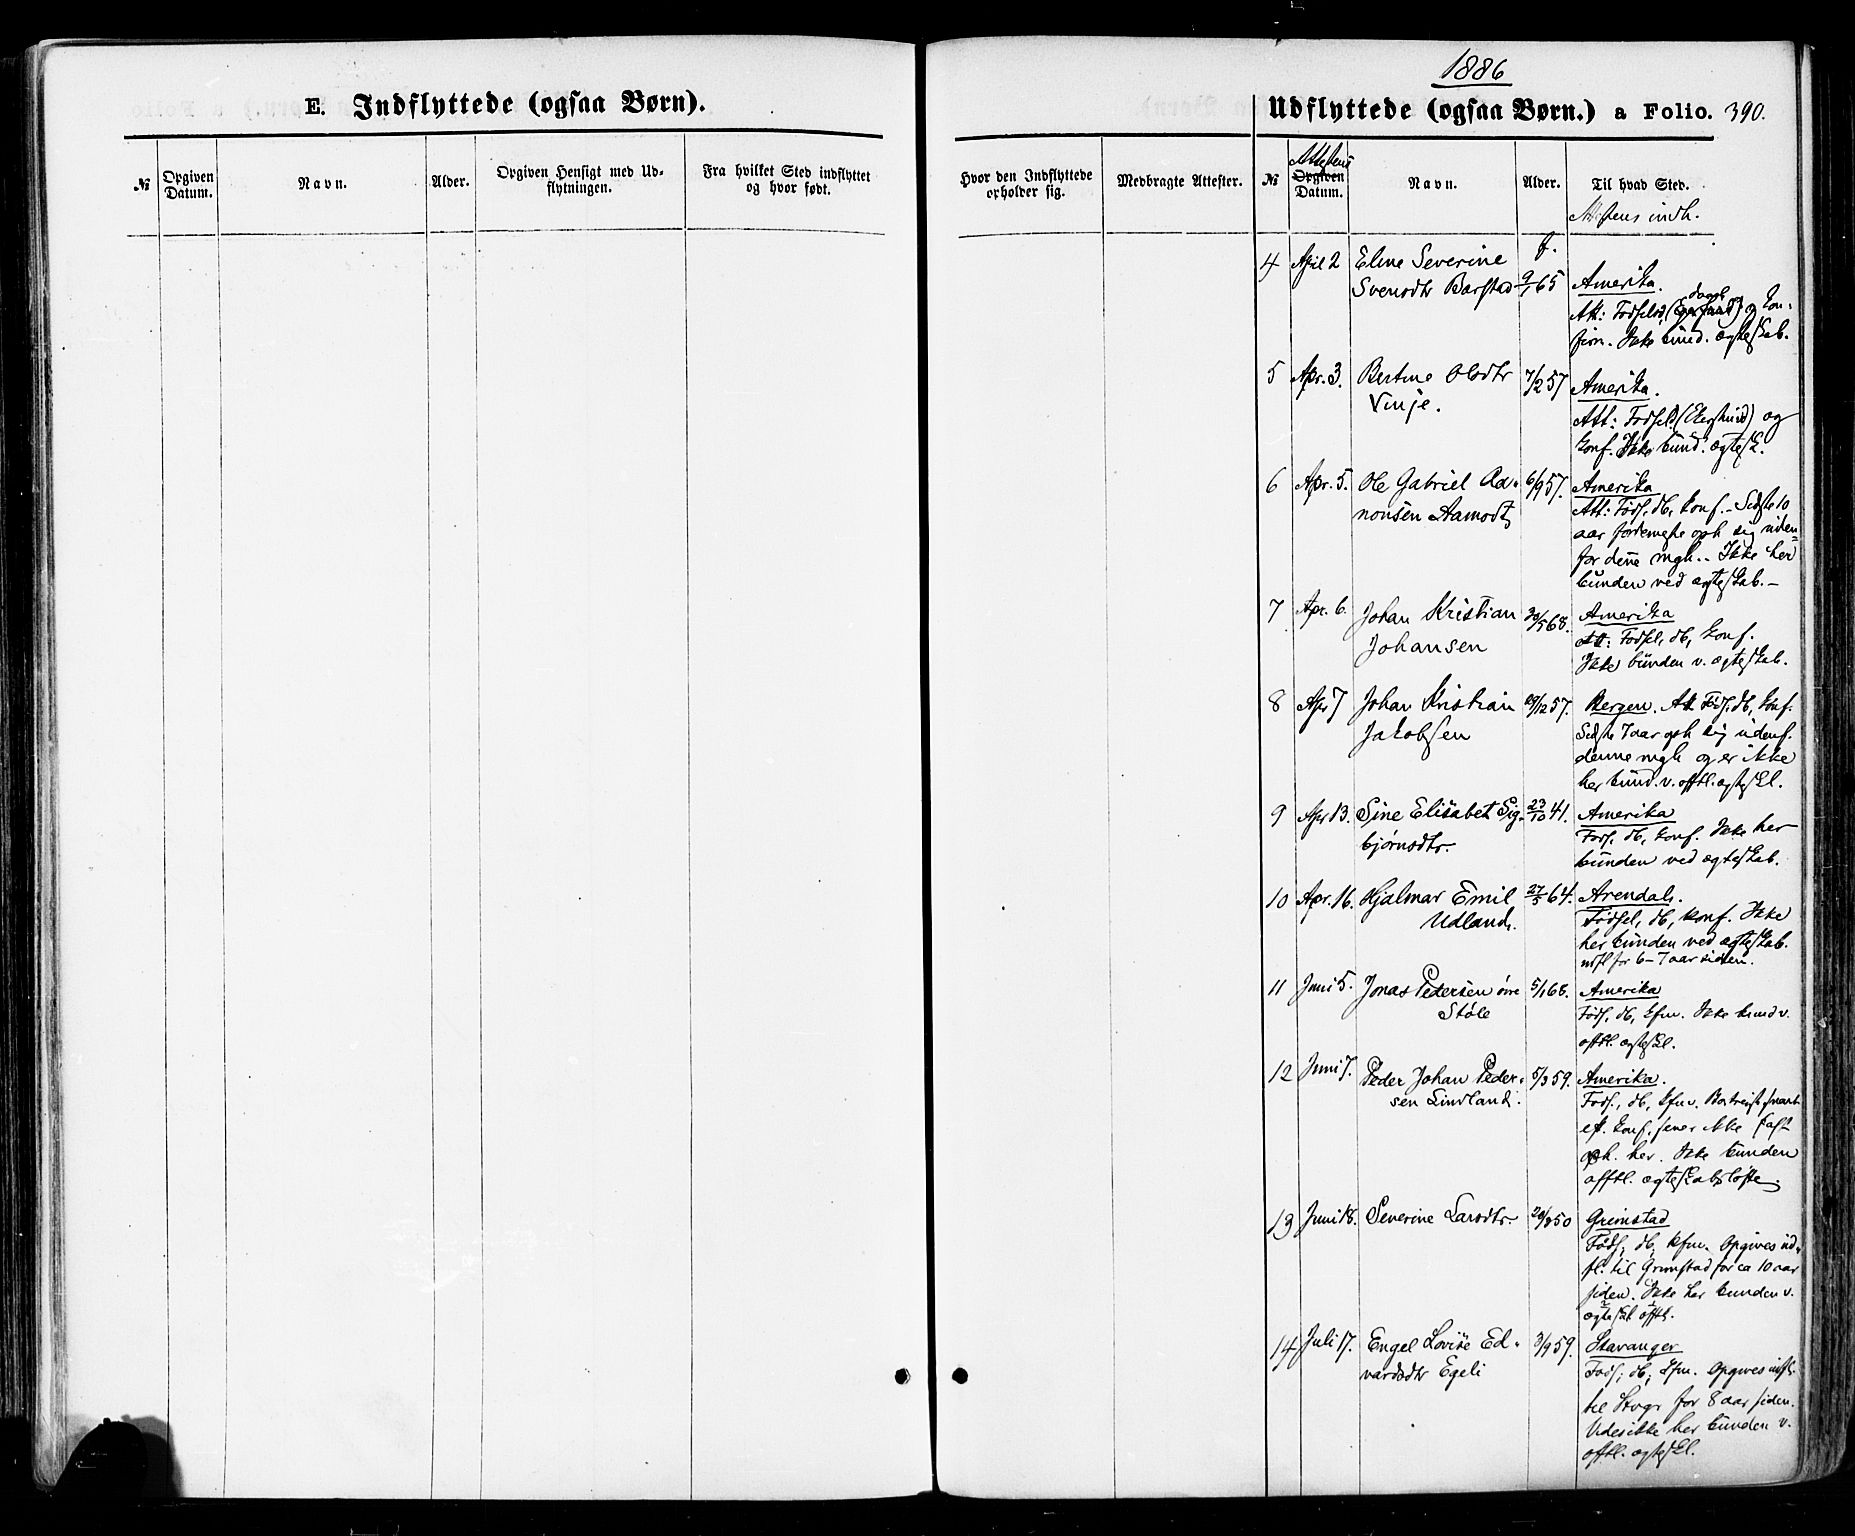 E. Indflyttede (ogsaa Børn).
№
Opgiven Datum.
Navn.
Alder.
Opgiven Hensigt med Udflytningen.
Fra hvilket Sted indflyttet og hvor født.
1886
Udflyttede (ogsaa Børn.) a Folio. 390.
Hvor den Indflyttede opholder sig.
Medbragte Attester.
№
Attestens
Opgiven Datum.
Navn.
Alder.
Til hvad Sted.
Attestens indh.
f.
4 April 2 Eline Severine
Svensdtr Barstad 9/1 65 Amerika.
Att: Fødsel, og Kon-
firm. Ikke bund. ægteskab.
5 Apr. 3. Bertine Olsdtr 7/2 57 Amerika.
Vinje.
Att: Fødsel (Ekersund) og
konf. Ikke bund. ægtesk.
6 Apr. 5. Ole Gabriel 6/9 57. Amerika
nonsen Aamodt
Att: Føds, db, konf. - Sidste 10
aar oph sig uden-
for denne mgh. - Ikke her
bunden ved ægteskab. -
7 Apr. 6. Johan Kristian 30/5 68. Amerika
Johansen
Att: Fødsel, db, konf.
Ikke bunden v. ægteskab.
8 Apr 7 Johan Kristian 29/12 57. Bergen. Att Føds, db, konf.
Jakobsen
Sidste 7 aar oph sig udenf.
denne mgh og er ikke
her bund. v. offtl. ægteskl.
9 Apr 13. Sine Elisabet Sig- 23/10 41. Amerika
bjørnsdtr.
Føds, db, konf. Ikke her
bunden ved ægteskab.
10 Apr. 16. Hjalmar Emil 27/5 64. Arendal.
Udland.
Fødsel, db, konf. Ikke
her bunden ved ægteskab.
udfl for 6-7 aar siden.
11 Juni 5. Jonas Pedersen øvre 5/1 68. Amerika
Støle
Føds, db, kfm. Ikke bund v.
offtl. ægteskl.
12 Juni 7. Peder Johan Peder- 5/3 59. Amerika.
sen Lindland.
Føds., db, kfm. Bortreist snart
eft. konf., siden ikke fast
oph. her. Ikke bunden
offtl. ægteskabsløfte.
13 Juni 18. Severine Larsdtr. 50 Grimstad
Føds, db, kfm. Opgives ud-
fl. til Grimstad for ca 10 aar
siden. Ikke her bunden v.
ægteskab offtl.
14 Juli 17. Engel Lovise Ed- 3/9 59. Stavanger
vardsdtr Egeli
Føds; db; kfm. Opgives udfl.
til Stvgr for 8 aar siden.
Vides ikke her bunden v.
offtl. ægteskl.